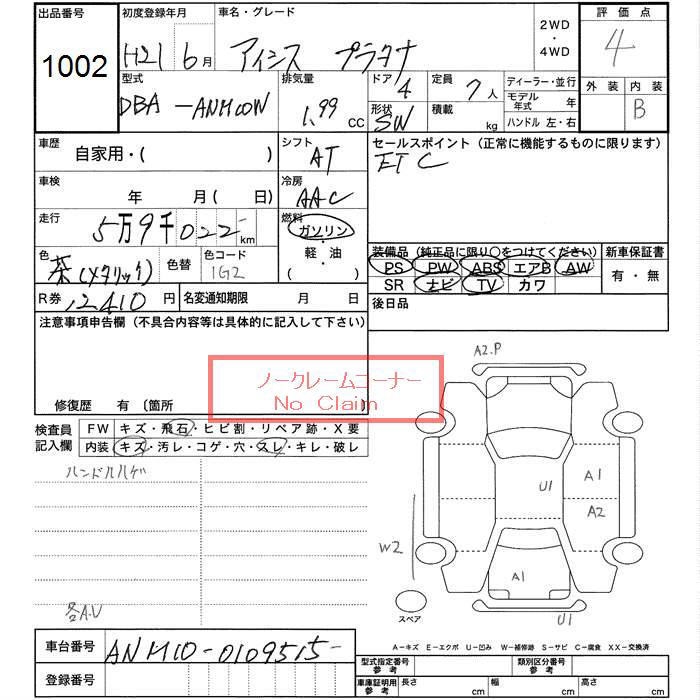 出品番号 初度登録年月 車名・グレード 2WD ・ 4WD 評価点
1002 H21 6月 アイシス プラタナ 4
型式 排気量 ドア 定員 ディーラー・並行 外装 内装
DBA-ANM10W 1.99 CC 4 7人 モデル年式 年 B
形状 SW 積載 kg ハンドル 左・右
車歴 自家用・( ) シフト AT セールスポイント (正常に機能するものに限ります)
ETC
車検 年 月 (日) 冷房 AAC
走行 5万9千022 km 燃料 ガソリン・軽油 ( )
色 茶(メタリック) 色替 色コード 1G2
装備品 (純正品に限り○をつけてください) 新車保証書
PS PW ABS エアB AW 有・無
SR ナビ TV カワ
R券 12410円 名変通知期限 月 日 後日品
注意事項申告欄 (不具合内容等は具体的に記入して下さい)
ノークレームコーナー
No Claim
修復歴 有 (箇所 )
検査員記入欄 FW キズ・飛石・ヒビ割・リペア跡・X要
内装 キズ・汚レ・コゲ・穴・スレ・キレ・破レ
ハンドルハゲ
各A.U
A2.P
U1 A1
A2
W2
A1
スペア U1
A-キズ E-エクボ U-凹み W-補修跡 S-サビ C-腐食 XX-交換済
車台番号 ANM10-0109515-
登録番号
型式指定番号 参考 類別区分番号 参考
車庫証明用 参考 長さ cm 幅 cm 高さ cm